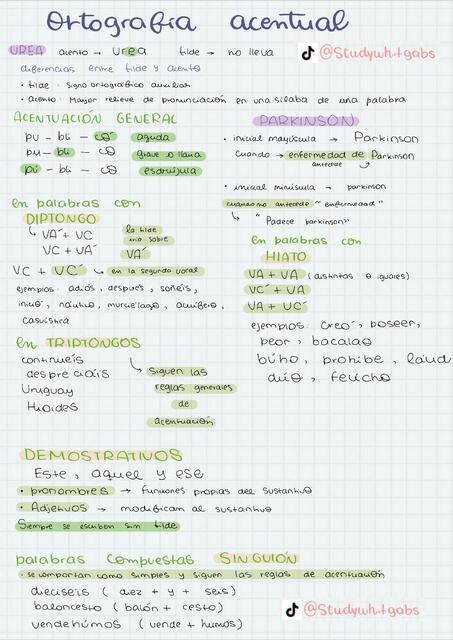 Ortografía acentual
UREA acento → urea tilde → no lleva
@Studywhitgabs
diferencias entre tilde y acento
• tilde: signo ortográfico auxiliar
• acento: Mayor relieve de pronunciación en una sílaba de una palabra
ACENTUACIÓN GENERAL
pu - bli - có aguda
pu - bli - co grave o llana
pú - bli - co esdrújula
PARKINSON
• inicial mayúscula → Parkinson
cuando → enfermedad de Parkinson
antecede
• inicial minúscula → parkinson
cuando no antecede "enfermedad"
↳ "Padece parkinson"
en palabras con
DIPTONGO
↳ VA´ + VC
VC + VA´
la tilde
irá sobre
VA´
VC + VC´ ↳ en la segunda vocal
ejemplos: adiós, después, soñéis,
inició, náutico, murciélago, acuífero,
casuística
en palabras con
HIATO
VA + VA (distintas o iguales)
VC´ + VA
VA + VC´
ejemplos: creó, poseer,
peor, bacalao
búho, prohíbe, laúd
dúo, feúcho
en TRIPTONGOS
continuéis
despreciáis
Uruguay
Hioides
↳ siguen las
reglas generales
de
acentuación
DEMOSTRATIVOS
Este, aquel y ese
• pronombres → funciones propias del sustantivo
• Adjetivos → modifican al sustantivo
Siempre se escriben sin tilde
palabras compuestas SIN GUIÓN
• se comportan como simples y siguen las reglas de acentuación
dieciséis (diez + y + seis)
baloncesto (balón + cesto)
vendehúmos (vende + humos)
@Studywhitgabs